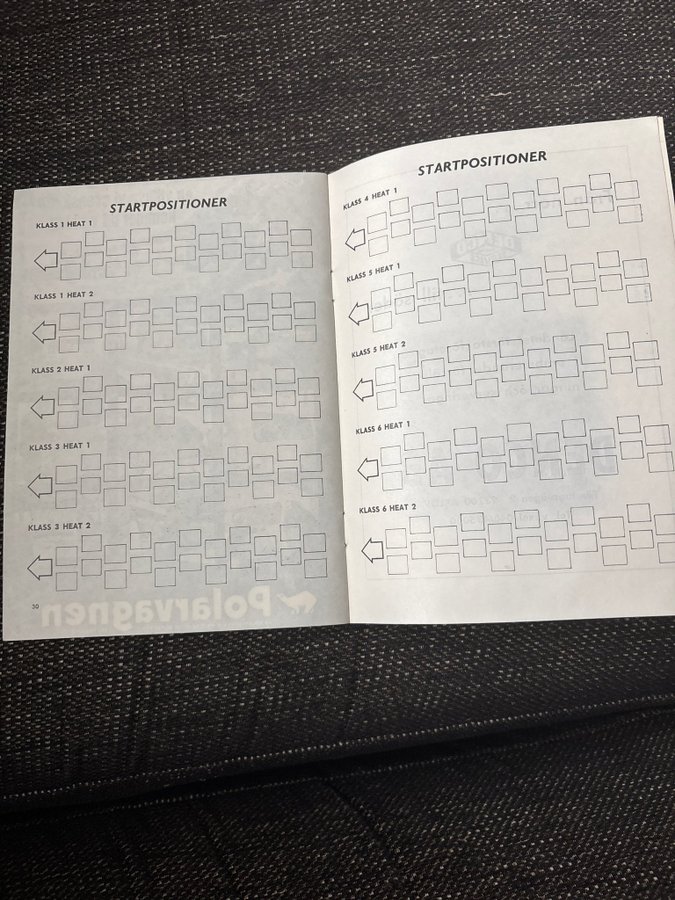 STARTPOSITIONER
KLASS 1 HEAT 1
KLASS 1 HEAT 2
KLASS 2 HEAT 1
KLASS 3 HEAT 1
KLASS 3 HEAT 2
30
Polarvagnen
STARTPOSITIONER
KLASS 4 HEAT 1
KLASS 5 HEAT 1
KLASS 5 HEAT 2
KLASS 6 HEAT 1
KLASS 6 HEAT 2